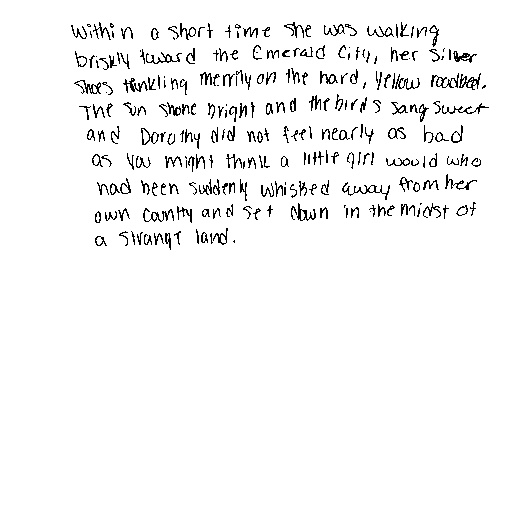 Within a short time she was walking
briskly toward the Emerald City, her Silver
Shoes tinkling merrily on the hard, yellow roadbed.
The sun shone bright and the birds sang sweet
and Dorothy did not feel nearly as bad
as you might think a little girl would who
had been suddenly whisked away from her
own country and set down in the midst of
a strange land.